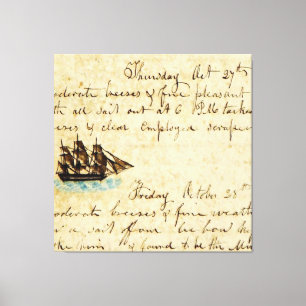 Thursday Oct 27th
oderate breezes & fine pleasant
th all sail out at 6 P.M. tacked
eses & clear Employed
Friday October 28th
oderate breezes & fine weath
a sail of our lee bow
found to be the